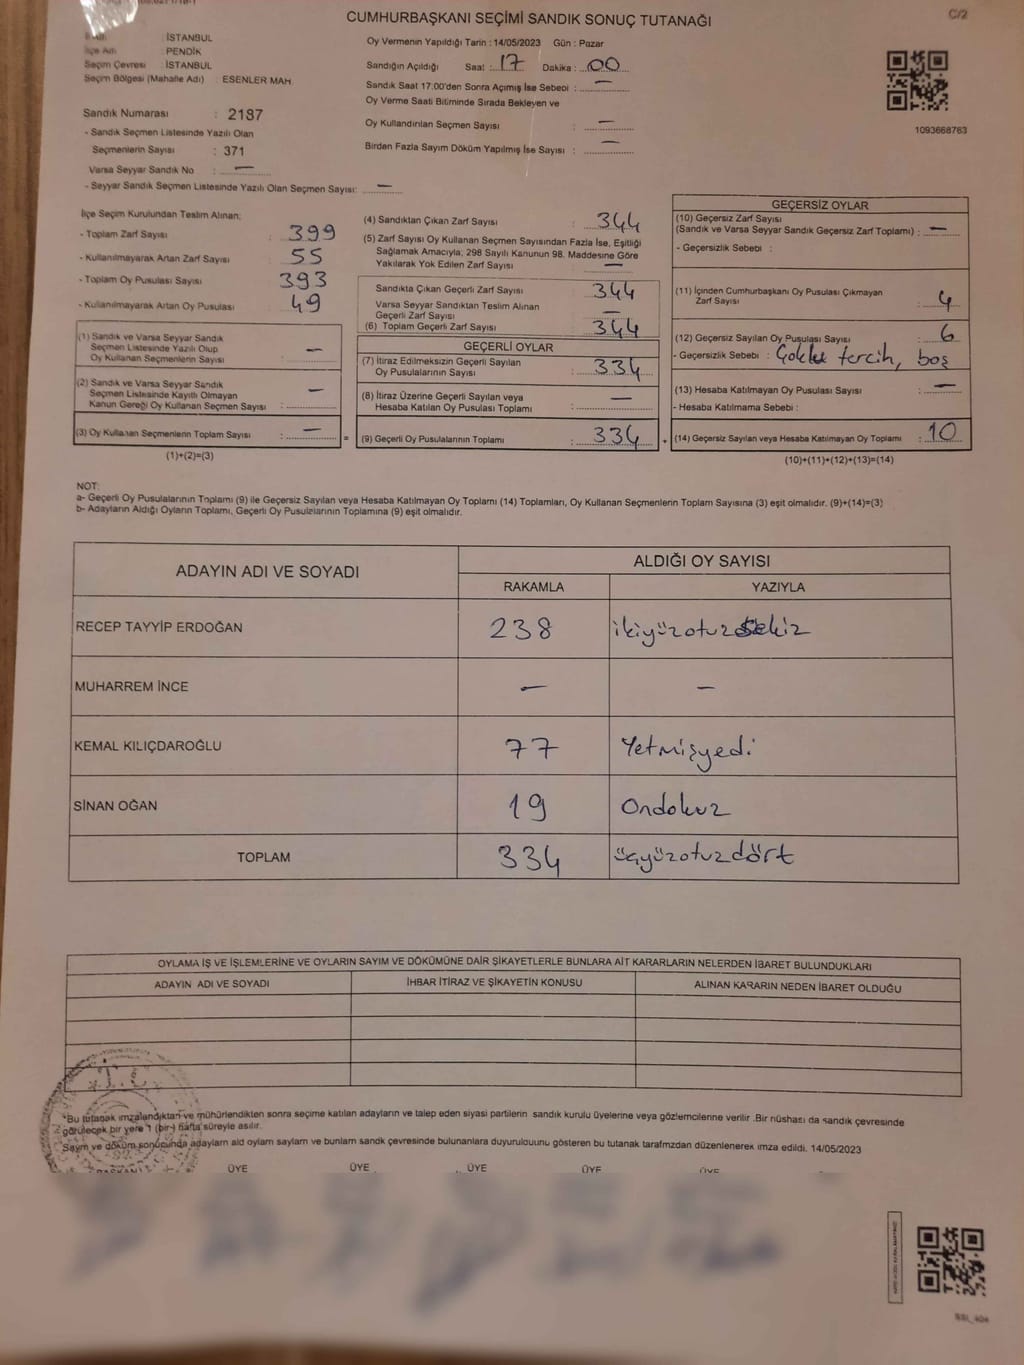 CUMHURBAŞKANI SEÇİMİ SANDIK SONUÇ TUTANAĞI
C/2
: İSTANBUL
İlçe Adı : PENDİK
Seçim Çevresi : İSTANBUL
Seçim Bölgesi (Mahalle Adı) : ESENLER MAH.
Sandık Numarası : 2187
- Sandık Seçmen Listesinde Yazılı Olan
Seçmenlerin Sayısı : 371
Varsa Seyyar Sandık No : —
- Seyyar Sandık Seçmen Listesinde Yazılı Olan Seçmen Sayısı: —
Oy Vermenin Yapıldığı Tarih : 14/05/2023 Gün : Pazar
Sandığın Açıldığı Saat : 17 Dakika : 00
Sandık Saat 17:00'den Sonra Açımış İse Sebebi : —
Oy Verme Saati Bitiminde Sırada Bekleyen ve
Oy Kullandırılan Seçmen Sayısı : —
Birden Fazla Sayım Döküm Yapılmış İse Sayısı : —
1093668763
İlçe Seçim Kurulundan Teslim Alınan;
- Toplam Zarf Sayısı : 399
- Kullanılmayarak Artan Zarf Sayısı : 55
- Toplam Oy Pusulası Sayısı : 393
- Kullanılmayarak Artan Oy Pusulası : 49
(1) Sandık ve Varsa Seyyar Sandık
Seçmen Listesinde Yazılı Olup
Oy Kullanan Seçmenlerin Sayısı : —
(2) Sandık ve Varsa Seyyar Sandık
Seçmen Listesinde Kayıtlı Olmayan
Kanun Gereği Oy Kullanan Seçmen Sayısı : —
(3) Oy Kullanan Seçmenlerin Toplam Sayısı : —
(1)+(2)=(3)
(4) Sandıktan Çıkan Zarf Sayısı : 344
(5) Zarf Sayısı Oy Kullanan Seçmen Sayısından Fazla İse, Eşitliği
Sağlamak Amacıyla, 298 Sayılı Kanunun 98. Maddesine Göre
Yakılarak Yok Edilen Zarf Sayısı : —
Sandıkta Çıkan Geçerli Zarf Sayısı : 344
Varsa Seyyar Sandıktan Teslim Alınan
Geçerli Zarf Sayısı : —
(6) Toplam Geçerli Zarf Sayısı : 344
GEÇERLİ OYLAR
(7) İtiraz Edilmeksizin Geçerli Sayılan
Oy Pusulalarının Sayısı : 334
(8) İtiraz Üzerine Geçerli Sayılan veya
Hesaba Katılan Oy Pusulası Toplamı : —
= (9) Geçerli Oy Pusulalarının Toplamı : 334
GEÇERSİZ OYLAR
(10) Geçersiz Zarf Sayısı
(Sandık ve Varsa Seyyar Sandık Geçersiz Zarf Toplamı) : —
- Geçersizlik Sebebi :
(11) İçinden Cumhurbaşkanı Oy Pusulası Çıkmayan
Zarf Sayısı : 4
(12) Geçersiz Sayılan Oy Pusulası Sayısı : 6
- Geçersizlik Sebebi : Çoklu tercih, boş
(13) Hesaba Katılmayan Oy Pusulası Sayısı : —
- Hesaba Katılmama Sebebi :
+ (14) Geçersiz Sayılan veya Hesaba Katılmayan Oy Toplamı : 10
(10)+(11)+(12)+(13)=(14)
NOT:
a- Geçerli Oy Pusulalarının Toplamı (9) ile Geçersiz Sayılan veya Hesaba Katılmayan Oy Toplamı (14) Toplamları, Oy Kullanan Seçmenlerin Toplam Sayısına (3) eşit olmalıdır. (9)+(14)=(3)
b- Adayların Aldığı Oyların Toplamı, Geçerli Oy Pusulalarının Toplamına (9) eşit olmalıdır.
ADAYIN ADI VE SOYADI
ALDIĞI OY SAYISI
RAKAMLA YAZIYLA
RECEP TAYYİP ERDOĞAN 238 ikiyüzotuzsekiz
MUHARREM İNCE — —
KEMAL KILIÇDAROĞLU 77 Yetmişyedi
SİNAN OĞAN 19 Ondokuz
TOPLAM 334 üçyüzotuzdört
OYLAMA İŞ VE İŞLEMLERİNE VE OYLARIN SAYIM VE DÖKÜMÜNE DAİR ŞİKAYETLERLE BUNLARA AİT KARARLARIN NELERDEN İBARET BULUNDUKLARI
ADAYIN ADI VE SOYADI İHBAR İTİRAZ VE ŞİKAYETİN KONUSU ALINAN KARARIN NEDEN İBARET OLDUĞU
T.C.
*Bu tutanak imzalandıktan ve mühürlendikten sonra seçime katılan adayların ve talep eden siyasi partilerin sandık kurulu üyelerine veya gözlemcilerine verilir .Bir nüshası da sandık çevresinde
görülecek bir yere 1 (bir) hafta süreyle asılır.
Sayım ve döküm sonucunda adayların ald oylam sayları ve bunlam sandk çevresinde bulunanlara duyurulduunu gösteren bu tutanak tarafmzdan düzenlenerek imza edildi. 14/05/2023
ÜYE ÜYE ÜYE ÜYE ÜYE